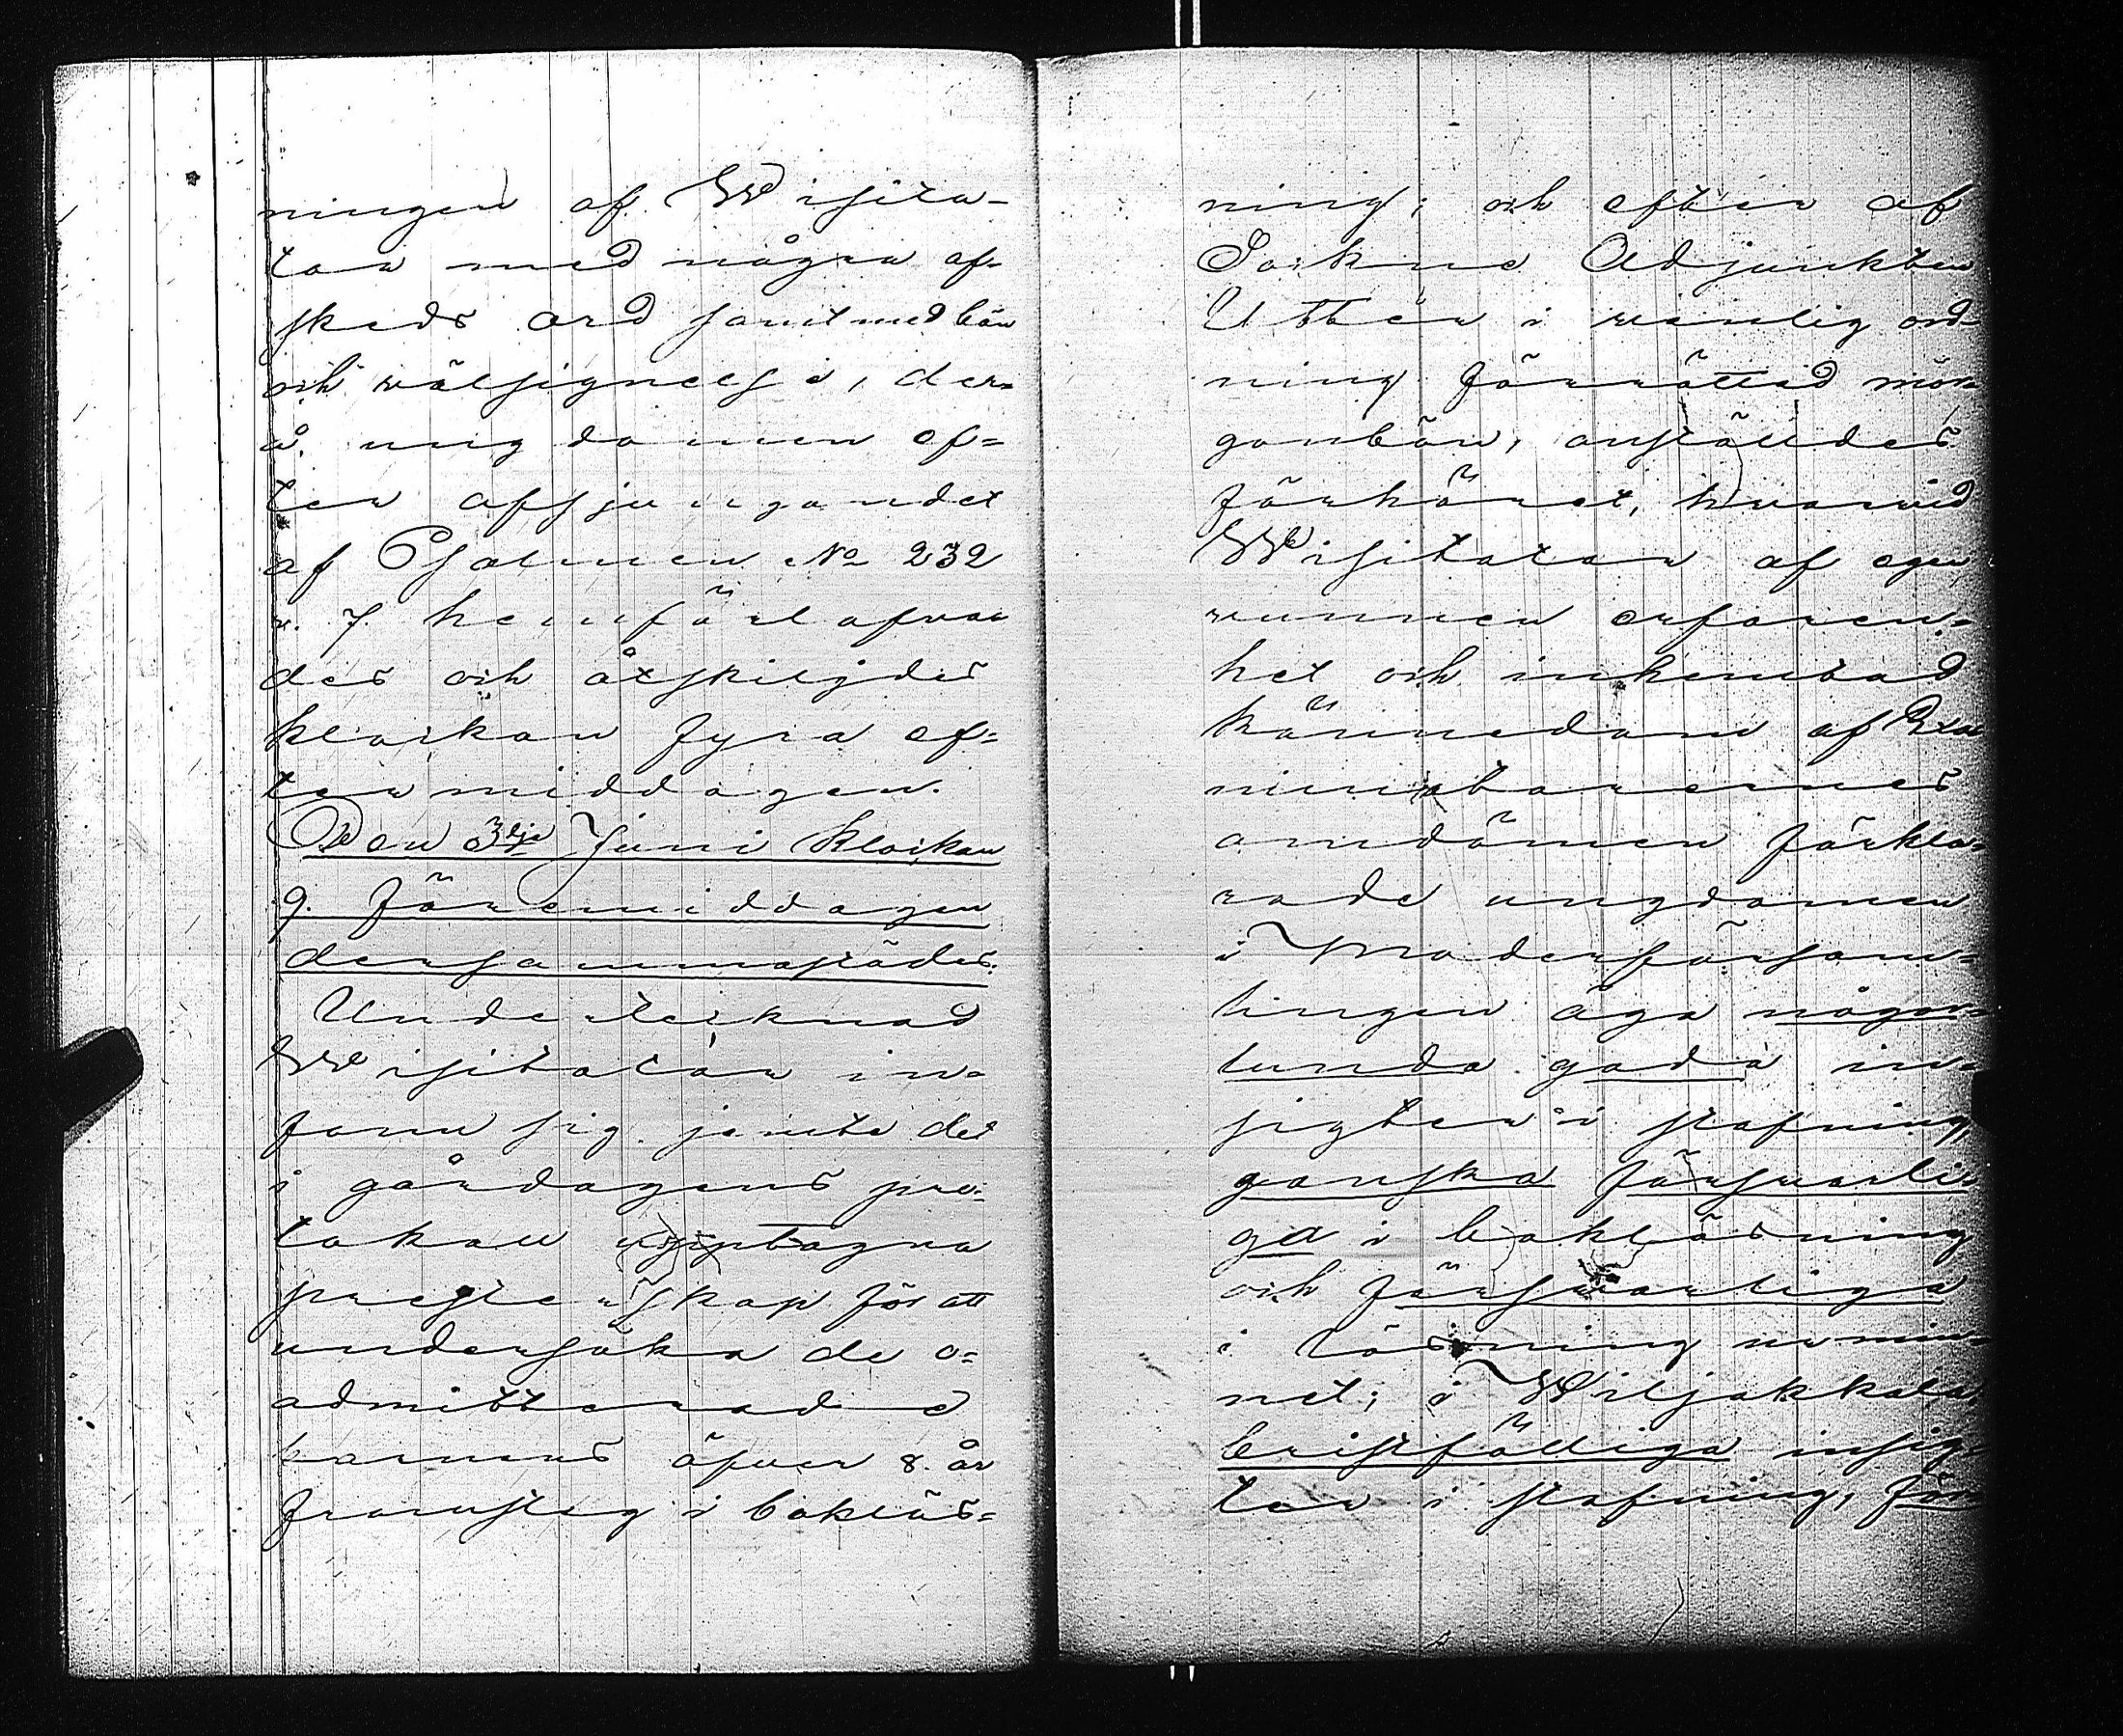 ningen af Wisita-
tor med några af-
skeds ord samt med bön
och välsignelse, der-
å ungdomen ef-
ter afsjungandet
af Psalmen No 232
v. 7. hemförlofva-
des och åtskiljdes
klockan fyra ef-
termiddagen.
Den 3dje Juni klockan
9. förmiddagen
dersammastädes.
Undertecknad
Wisitator in-
fann sig jemte det
i gårdagens pro-
tokoll upptagna
presterskap för att
undersöka de o-
admitterade
barnens öfver 8. år
framsteg i bokläs-
ning; och efter af
Sockne Adjunkten
Uttér i vanlig ord-
ning förrättad mor-
gonbön, anställdes
förhöret, hvarvid
Wisitator af egen
vunnen erfaren-
het och inhemtad
kännedom af Exa-
minatorernes
omdömen förkla-
rade ungdomen
i Moderförsam-
lingen äga någor-
lunda goda in-
sigter i stafning
ganska försvarli-
ga i bokläsning
och försvarliga
i läsning ur min-
net; i Wiljakkala
bristfälliga insig-
ter i stafning, för